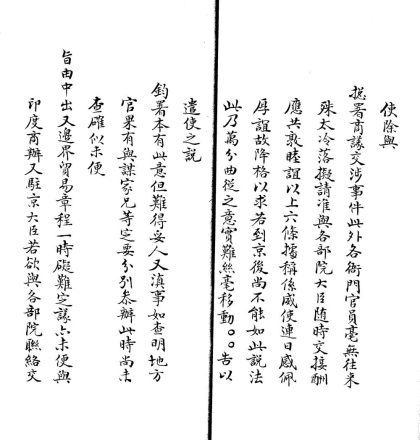 使除與
揔署商議交涉事件此外各衙門官員毫無往来
殊太冷落擬請准與各部院大臣随時交接酬
應共敦睦誼以上六條據稱係威使連日感佩
厚誼故降格以求若到京後尚不能如此説法
此乃萬分曲從之意實難絲毫移動。。告以
遣使之説
鈞署本有此意但難得妥人又滇事如查明地方
官果有與謀家兄等定要分别叅辦此時尚未
查確似未便
旨由中出又邊界貿易章程一時礙難定議亦未便與
印度商辦又駐京大臣若欲與各部院聯絡交